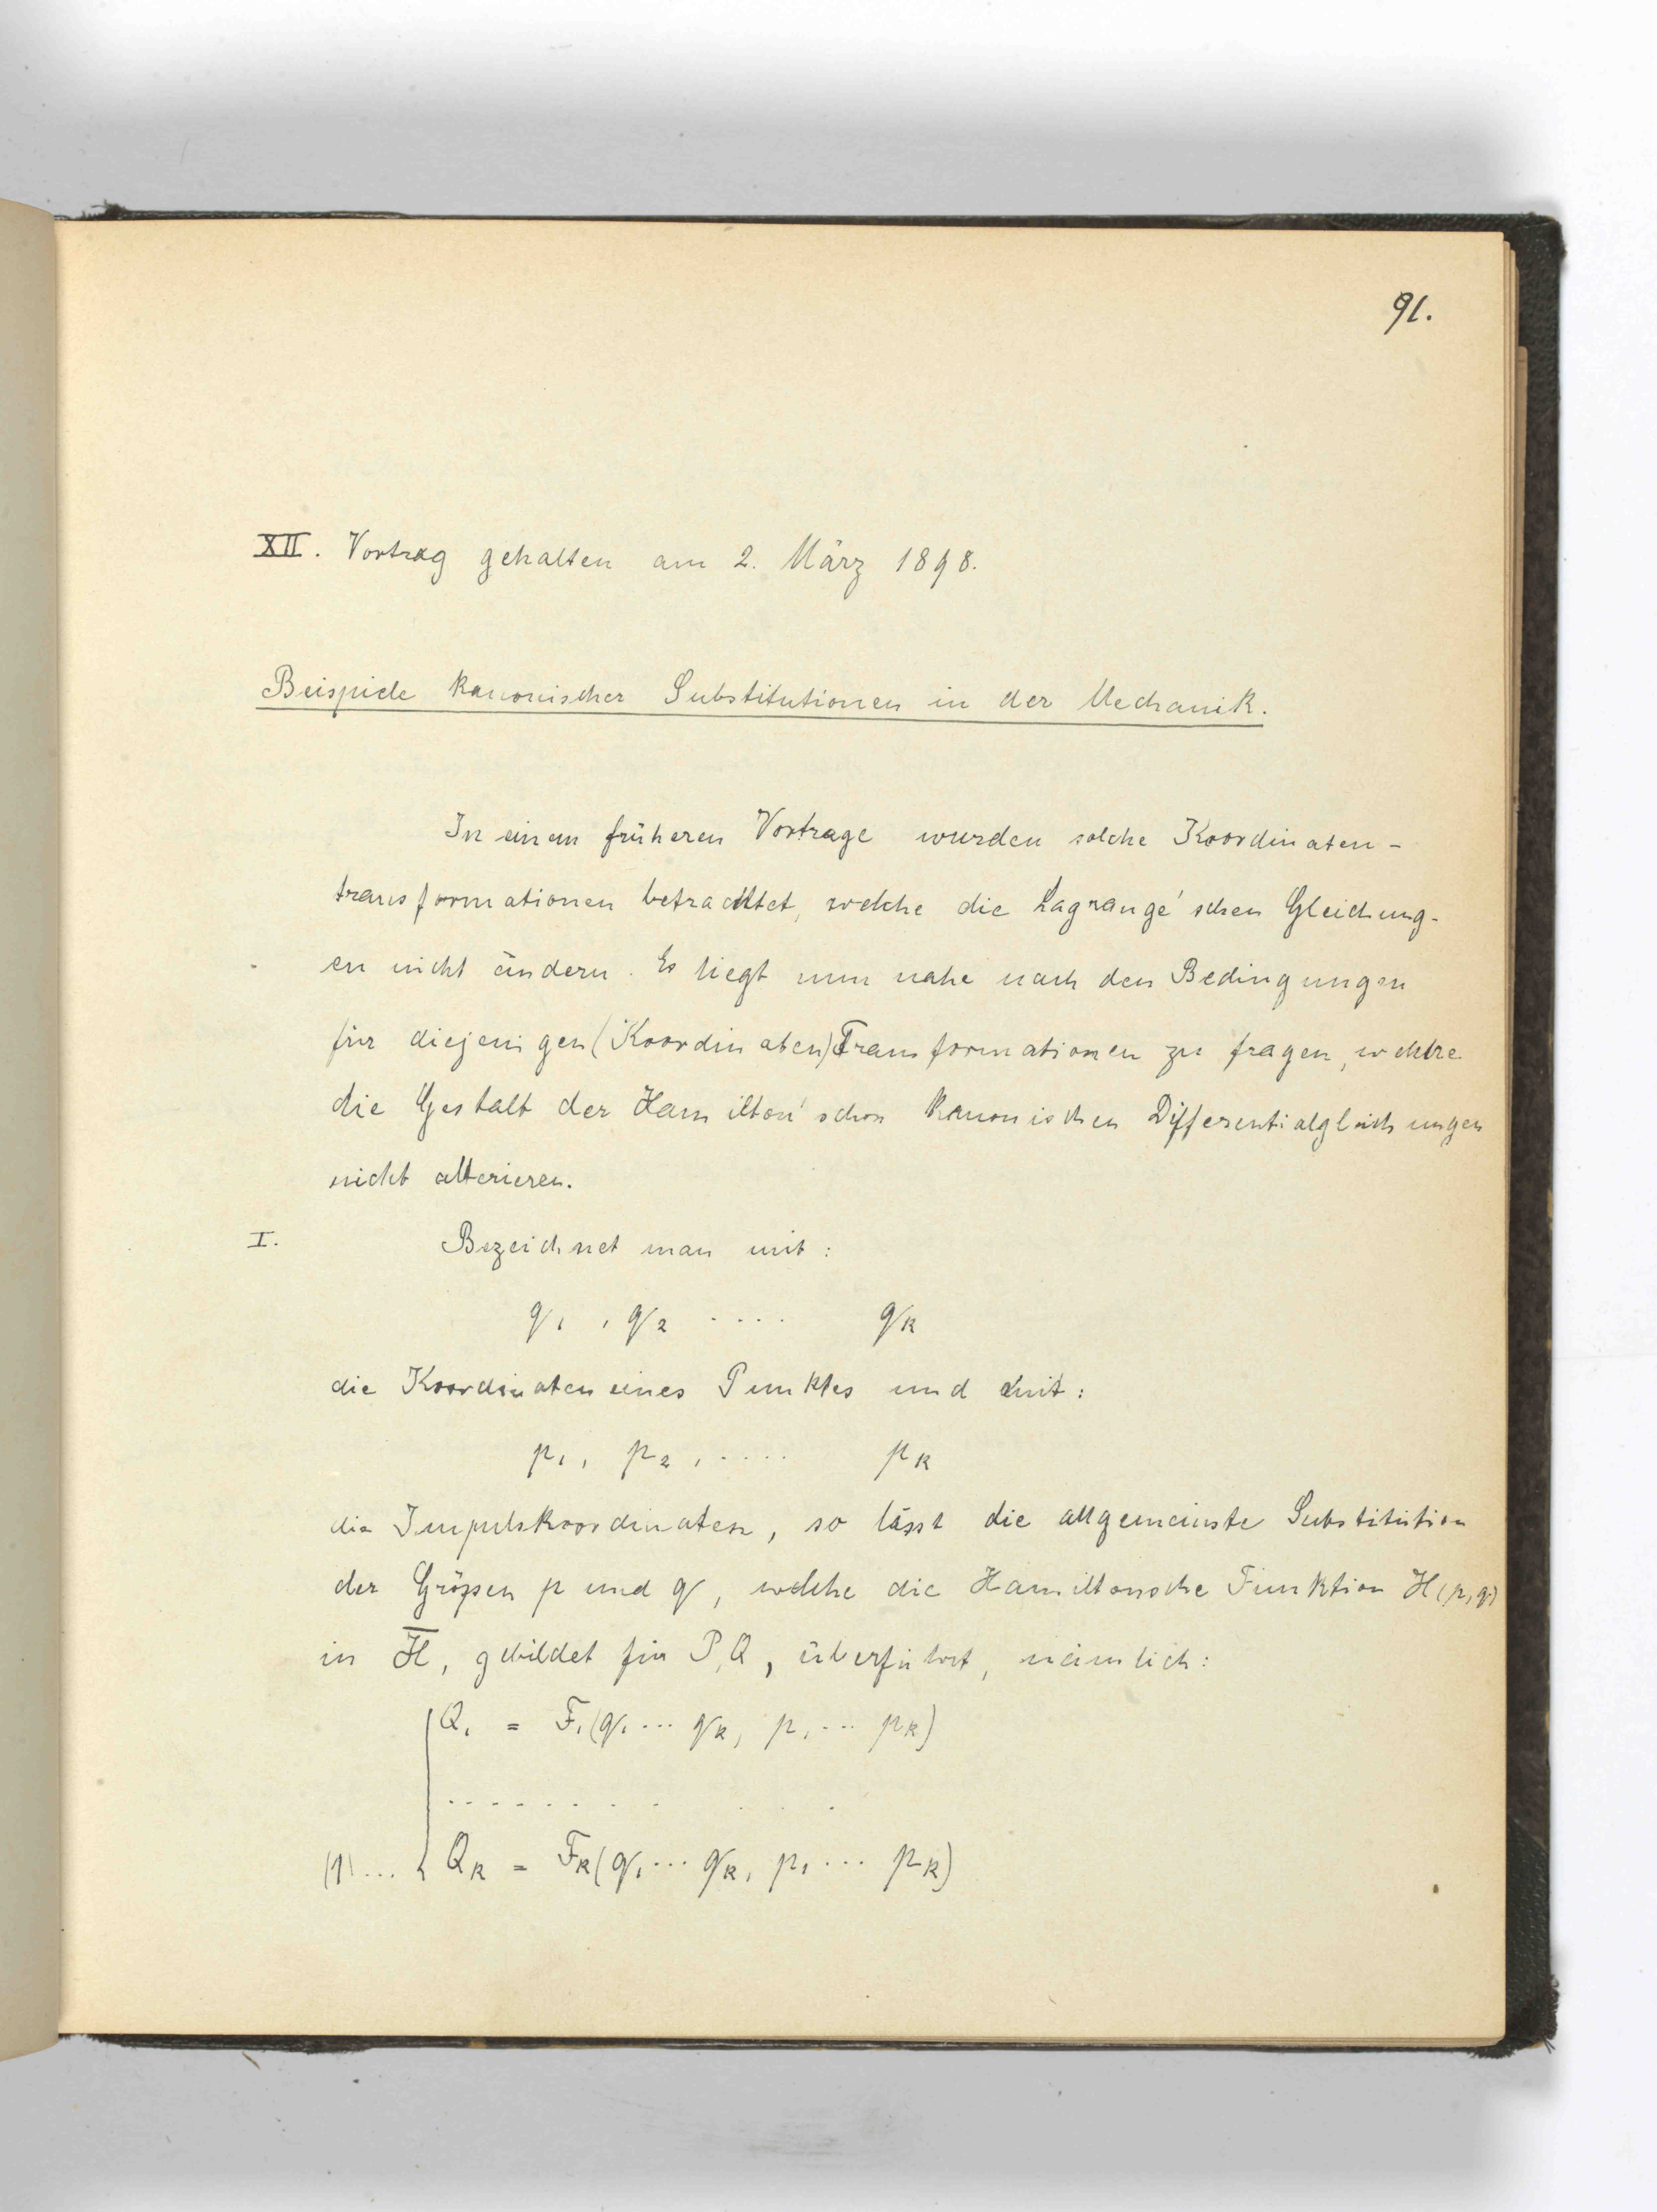 91.
XII. Vortrag gehalten am 2. März 1898.
Beispiele kanonischer Substitutionen in der Mechanik.
In einem früheren Vortrage wurden solche Koordinaten-
transformationen betrachtet, welche die Lagrange'schen Gleichung-
en nicht ändern. Es liegt nun nahe nach den Bedingungen
für diejenigen (Koordinaten) Transformationen zu fragen, welche
die Gestalt der Hamilton'schen kanonischen Differentialgleichungen
nicht alterieren.
I. Bezeichnet man mit:
q₁ , q₂ .... qk
die Koordinaten eines Punktes und mit:
p₁, p₂, .... pk
die Impulskoordinaten, so lässt die allgemeinste Substitution
der Größen p und q, welche die Hamiltonsche Funktion H(p,q)
in H̅, gebildet für P,Q, überführt, nämlich:
Q₁ = F₁(q₁ ... qk, p₁ ... pk)
. . . . . . . . . . . .
(1)... { Qk = Fk(q₁ ... qk, p₁ ... pk)